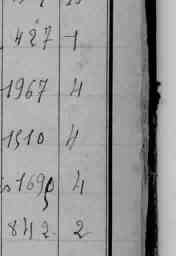 427 1
1967 4
1510 4
1690 4
842 2